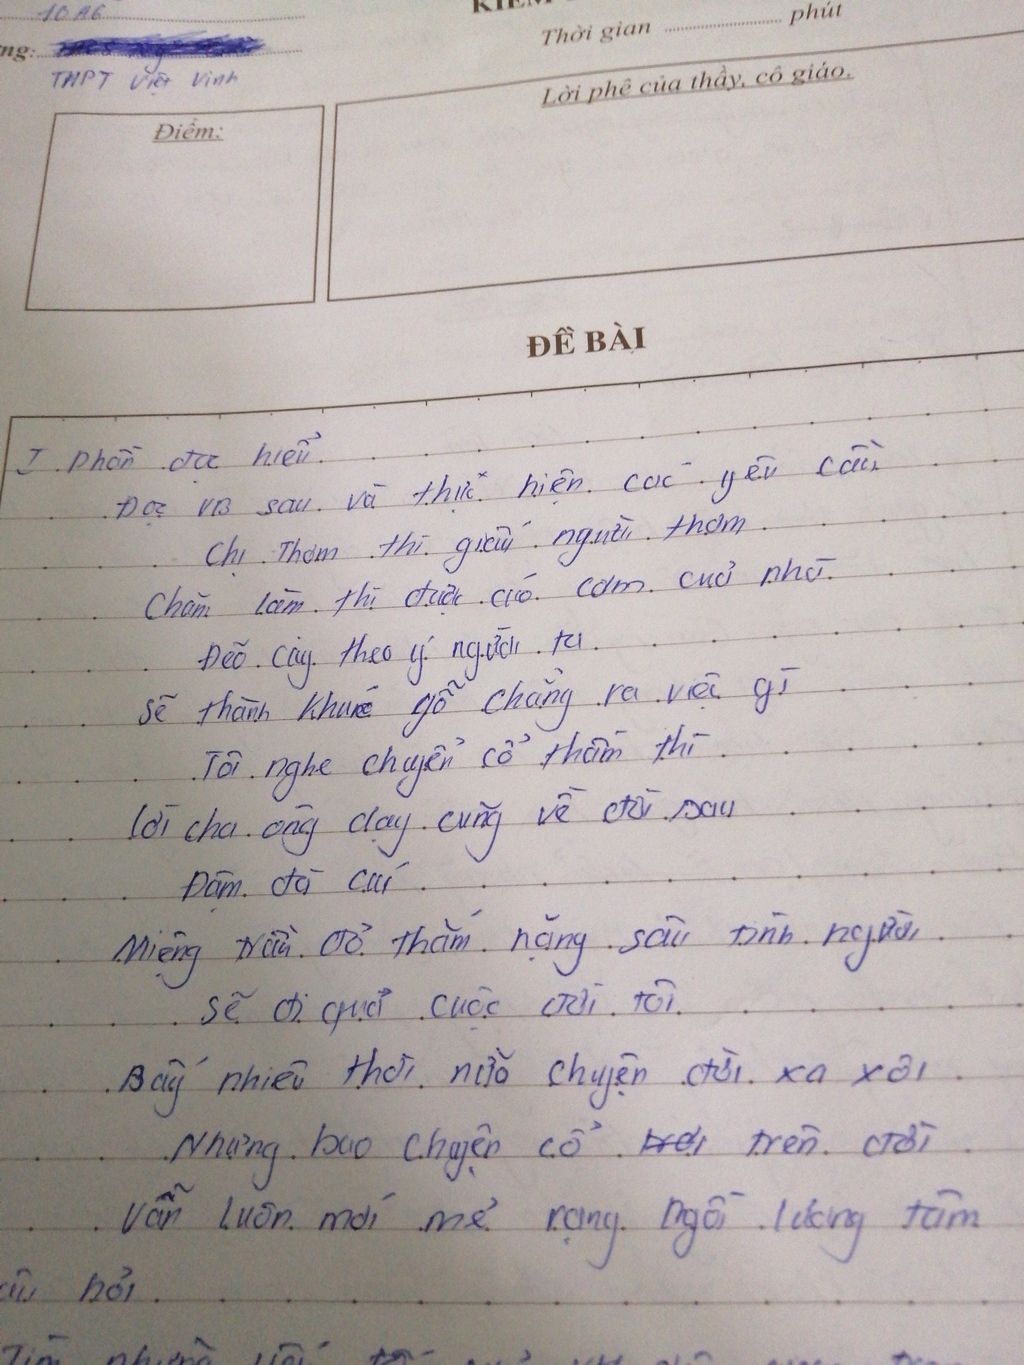 10A6
KIỂM
ng:
Thời gian .................. phút
THPT Việt Vinh
Điểm:
Lời phê của thầy, cô giáo.
ĐỀ BÀI
I Phần đọc hiểu
Đọc VB sau và thực hiện các yêu cầu
Chị Thơm thì giấu người thơm
Chăm làm thì được áo cơm cửa nhà
Đẽo cày theo ý người ta
Sẽ thành khúc gỗ chẳng ra việc gì
Tôi nghe chuyện cổ thầm thì
Lời cha ông dạy cũng về đời sau
Đậm đà cái
Miếng trầu đỏ thắm nặng sâu tình người
Sẽ đi qua cuộc đời tôi
Bấy nhiêu thời nữa chuyện đời xa xôi
Nhưng bao chuyện cổ trên đời
Vẫn luôn mới mẻ rạng ngời lương tâm
hỏi
Tìm những yếu tố